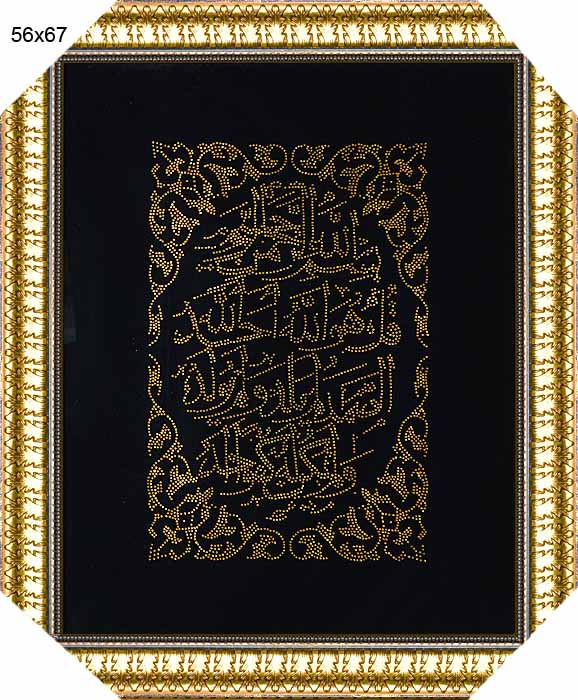 56x67
بسم الله الرحمن الرحيم
قل هو الله احد الله
الصمد لم يلد ولم يولد
ولم يكن له كفوا احد